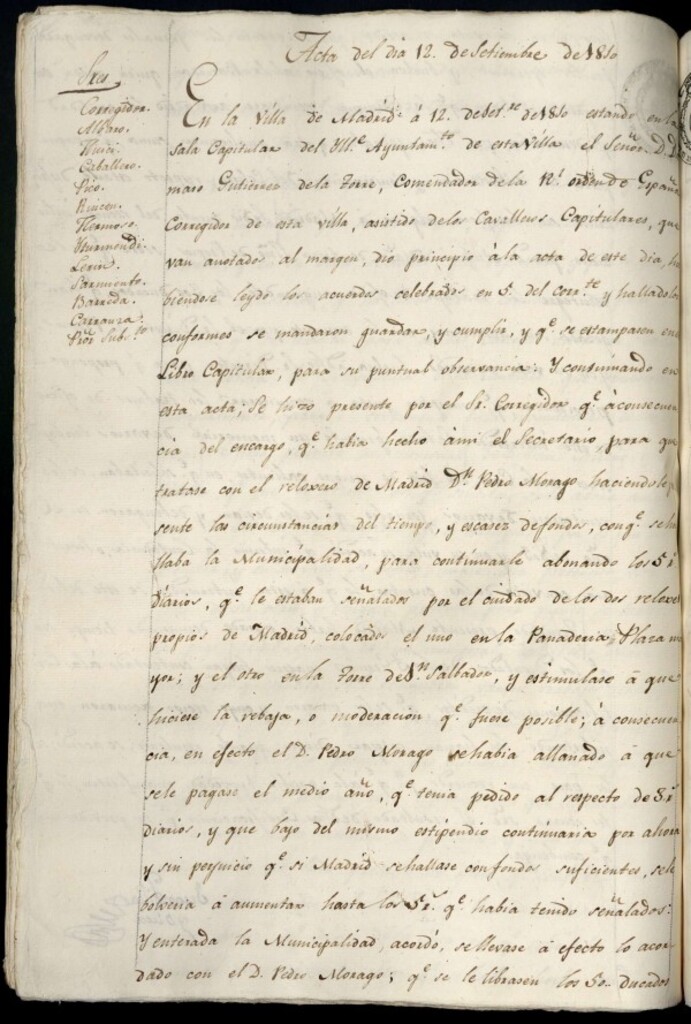 Acta del dia 12. de Setiembre de 1810
Sres
Corregidor.
Alfaro.
Huici.
Caballero.
Pico.
Rincon.
Hermoso.
Yturmendi.
Lerin.
Sarmiento.
Barreda.
Carranza.
Pror Sub.to
En la Villa de Madrid á 12. de Set.re de 1810 estando en la
sala Capitular del Yll.e Ayuntam.to de esta Villa el Señor D. D
maso Gutierrez de la Torre, Comendador de la Rl. orden de España
Corregidor de esta villa, asistido de los Cavalleros Capitulares, que
van anotados al margen, dio principio á la acta de este dia, ha
biendose leydo los acuerdos celebrados en 5. del corr.te y hallados
conformes se mandaron guardar, y cumplir, y q.e se estampasen en
Libro Capitular, para su puntual observancia: Y continuando en
esta acta; Se hizo presente por el Sr. Corregidor q.e á consecuen
cia del encargo, q.e habia hecho á mi el Secretario, para que
tratase con el reloxero de Madrid Dn. Pedro Morago haciendole p
sente las circunstancias del tiempo, y escasez de fondos, con q.e se ha
llaba la Municipalidad, para continuarle abonando los 5 r
diarios, q.e le estaban señalados por el cuidado de los dos reloxes
propios de Madrid, colocados el uno en la Panaderia, Plaza ma
yor; y el otro en la Torre de Sn. Salbador, y estimulase á que
hiciese la rebaja, o moderacion q.e fuese posible; á consecuen
cia, en efecto el D. Pedro Morago se habia allanado á que
se le pagase el medio año, q.e tenia pedido al respecto de 3 r
diarios, y que bajo del mismo estipendio continuaria por ahora
y sin perjuicio q.e si Madrid se hallase con fondos suficientes, se le
bolveria á aumentar hasta los 5 r. q.e habia tenido señalados:
Y enterada la Municipalidad, acordó, se llevase á efecto lo acor
dado con el D. Pedro Morago; q.e se le librasen los 50 ducados